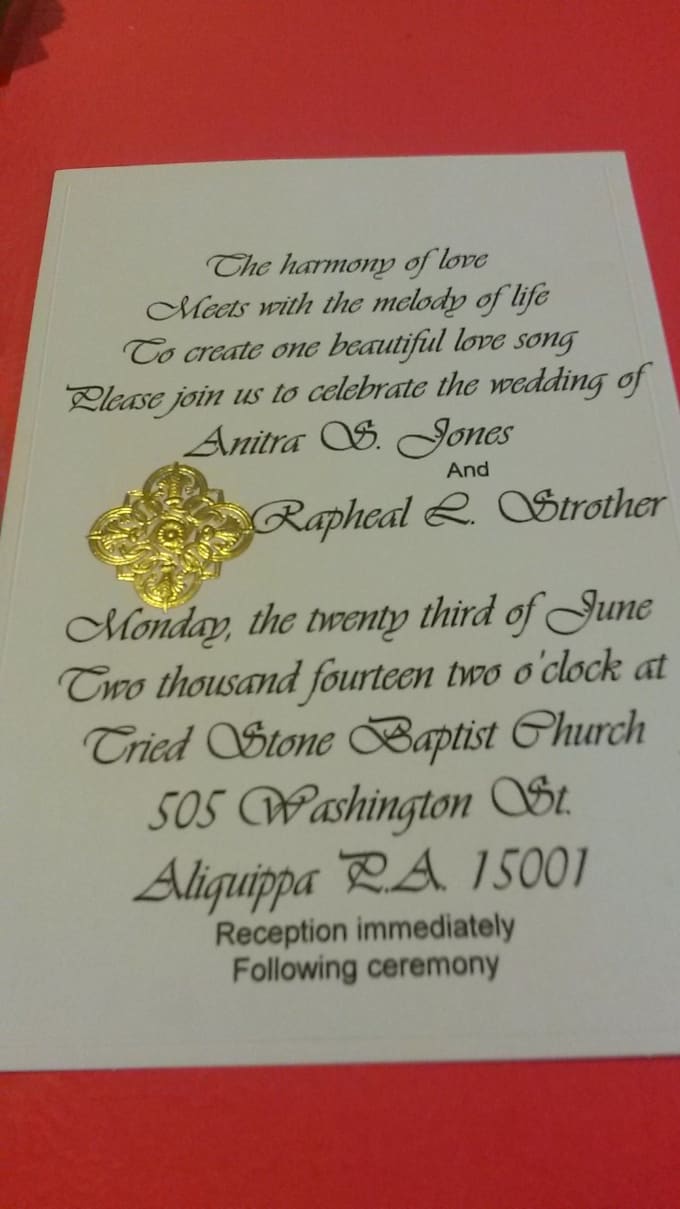 The harmony of love
Meets with the melody of life
To create one beautiful love song
Please join us to celebrate the wedding of
Anitra S. Jones
And
Rapheal L. Strother
Monday, the twenty third of June
Two thousand fourteen two o'clock at
Tried Stone Baptist Church
505 Washington St.
Aliquippa P.A. 15001
Reception immediately
Following ceremony